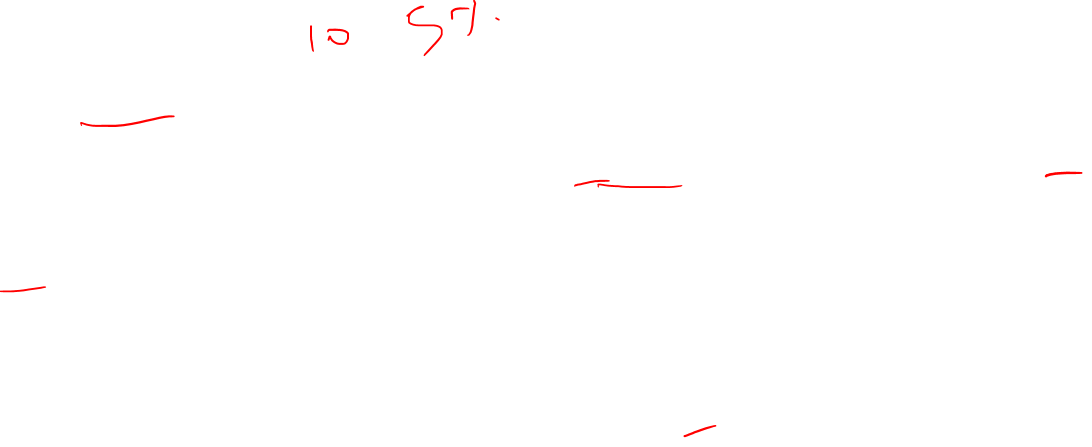 10 57.